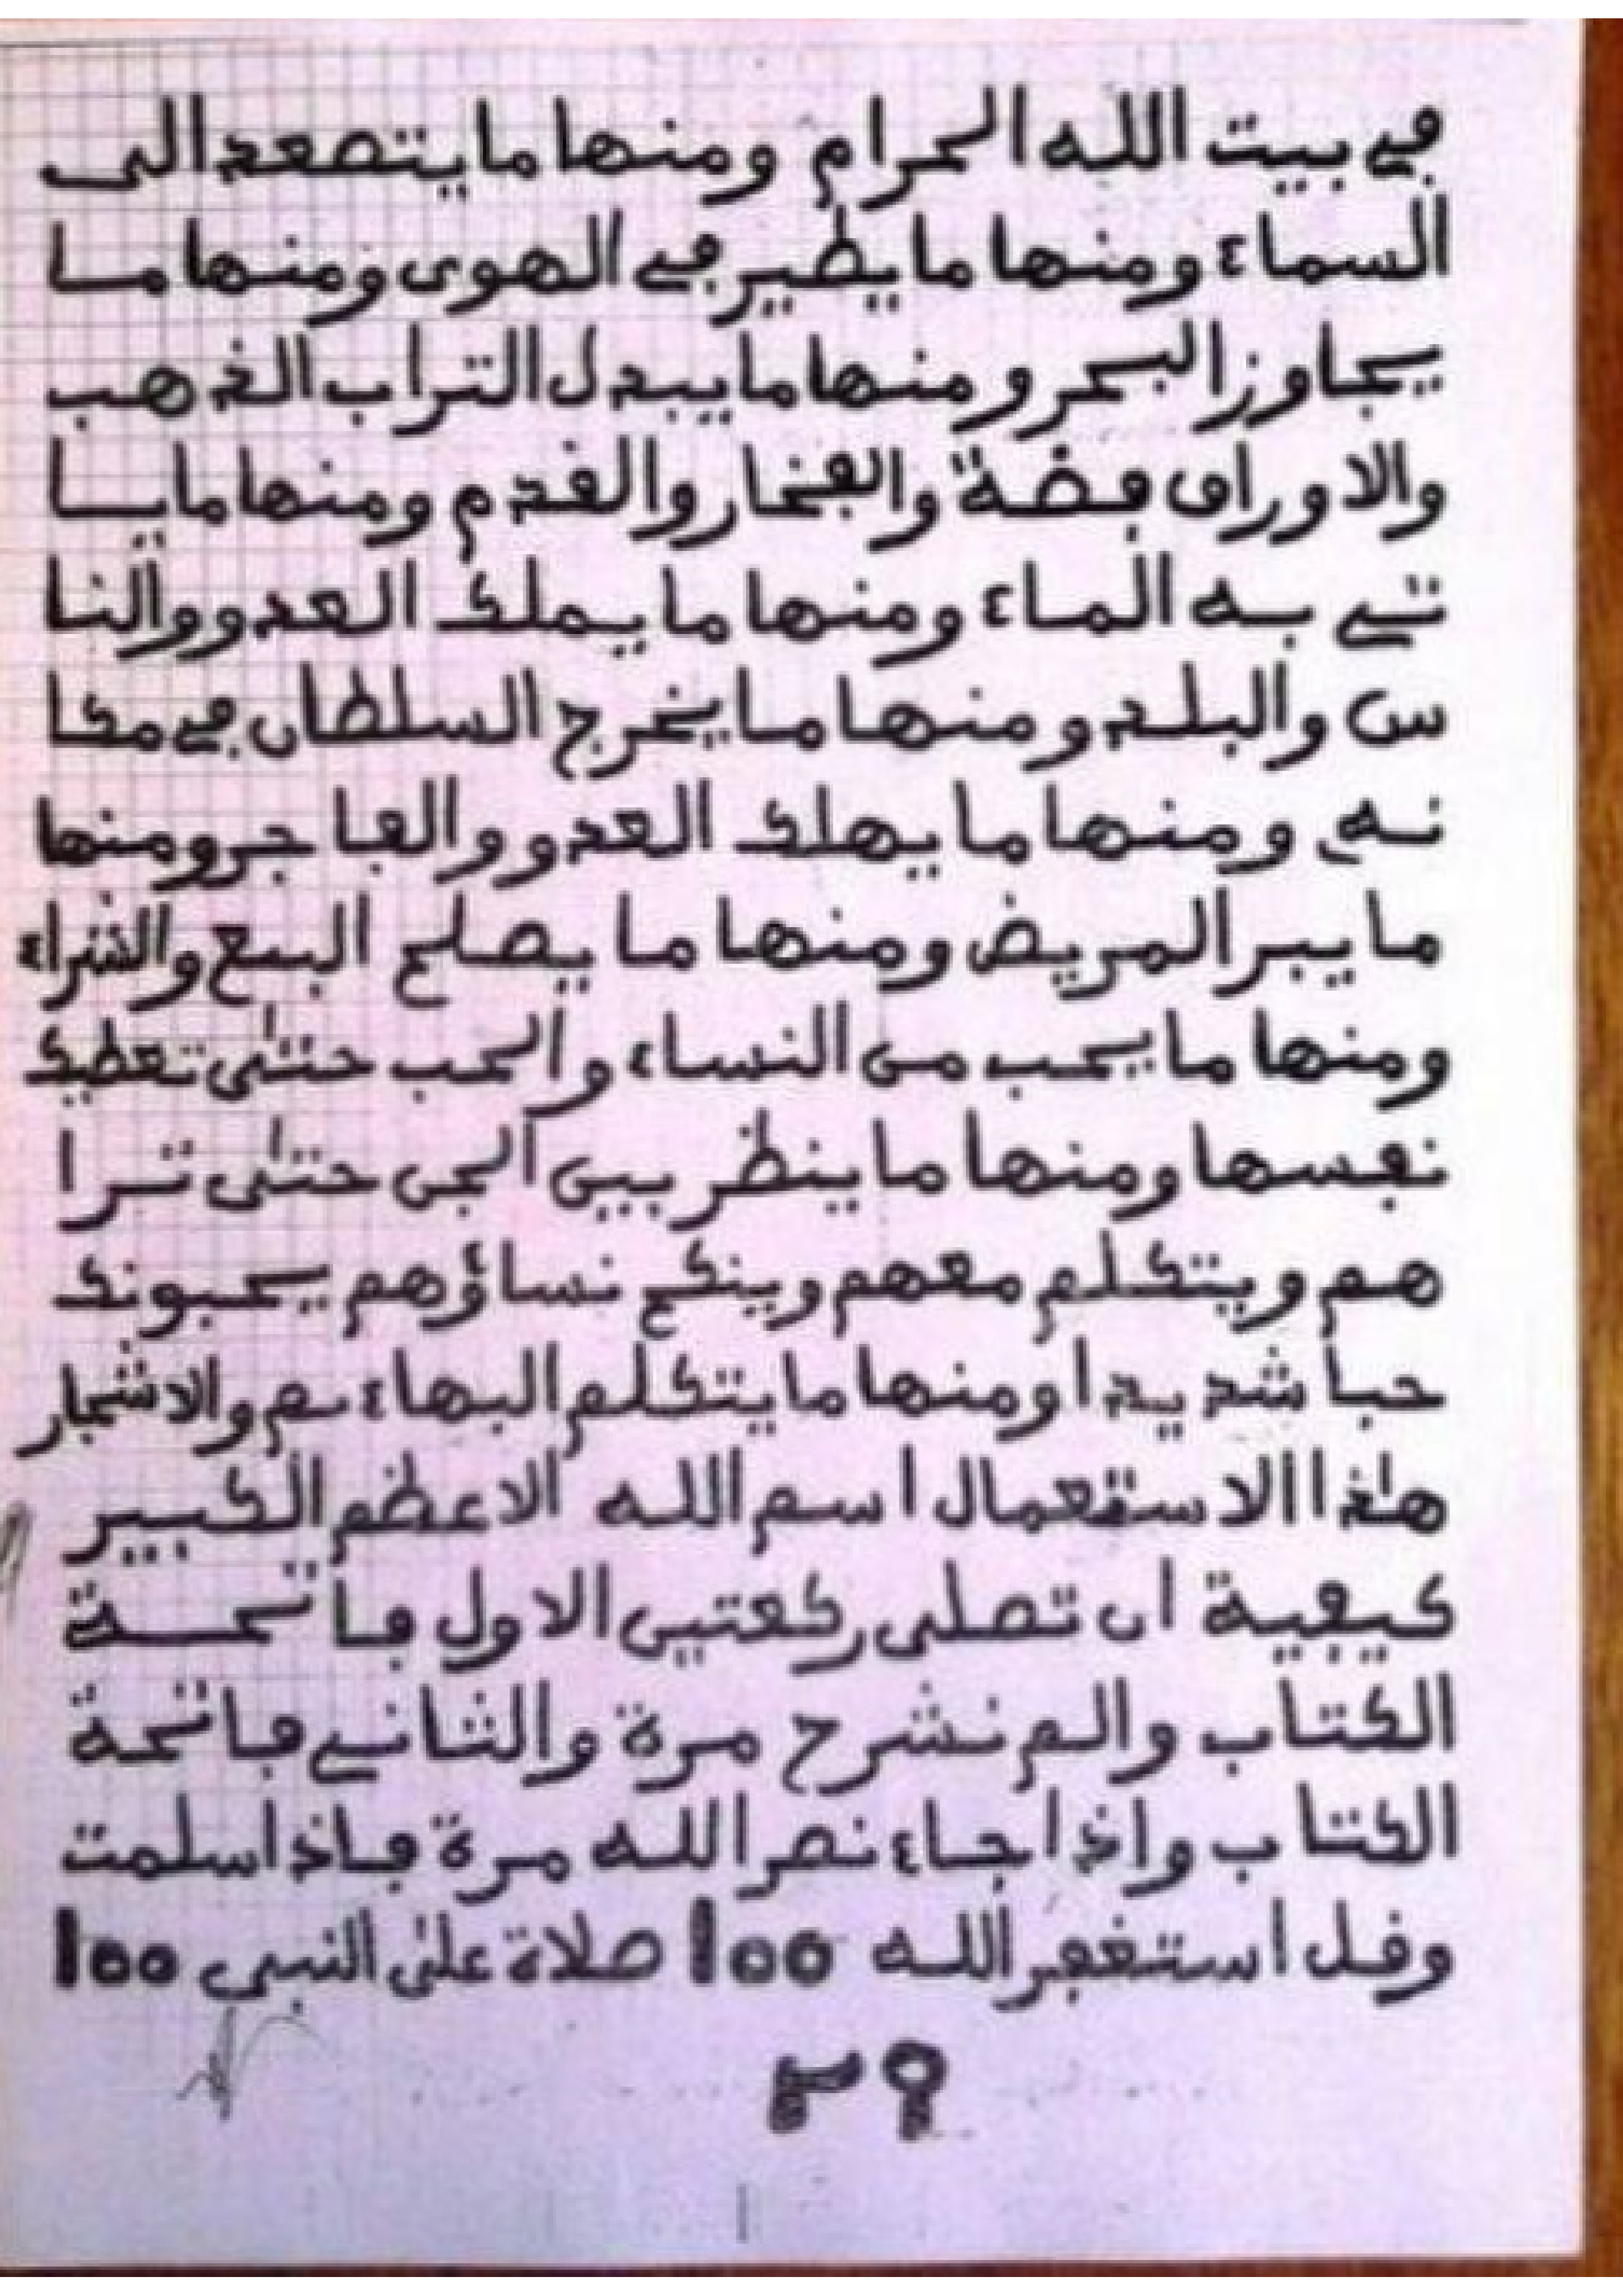 في بيت الله الحرام ومنها ما يتصعد الى
السماء ومنها ما يطير في الهوى ومنها ما
يجاوز البحر ومنها ما يبدل التراب الذهب
والاوراق فضة والفخار والقدم ومنها ما يا
تي به الماء ومنها ما يملك العدو والنا
س والبلد ومنها ما يخرج السلطان في مكا
نه ومنها ما يهلك العدو والفاجر ومنها
ما يبر المريض ومنها ما يصلح البيع والشراء
ومنها ما يحب من النساء والحب حتىٰ تعطيك
نفسها ومنها ما ينظر بين الجن حتىٰ ترا
هم ويتكلم معهم وينكح نساؤهم يحبونك
حبا شديدا ومنها ما يتكلم البهاءىم والاشجار
هٰذا الاستعمال اسم الله الاعظم الكبير
كيفية ان تصلى ركعتين الاول فاتحة
الكتاب والم نشرح مرة والثاني فاتحة
الكتاب واذا جاء نصر الله مرة فاذا سلمت
وقل استغفر الله 100 صلاة علىٰ النبي 100
٢٩